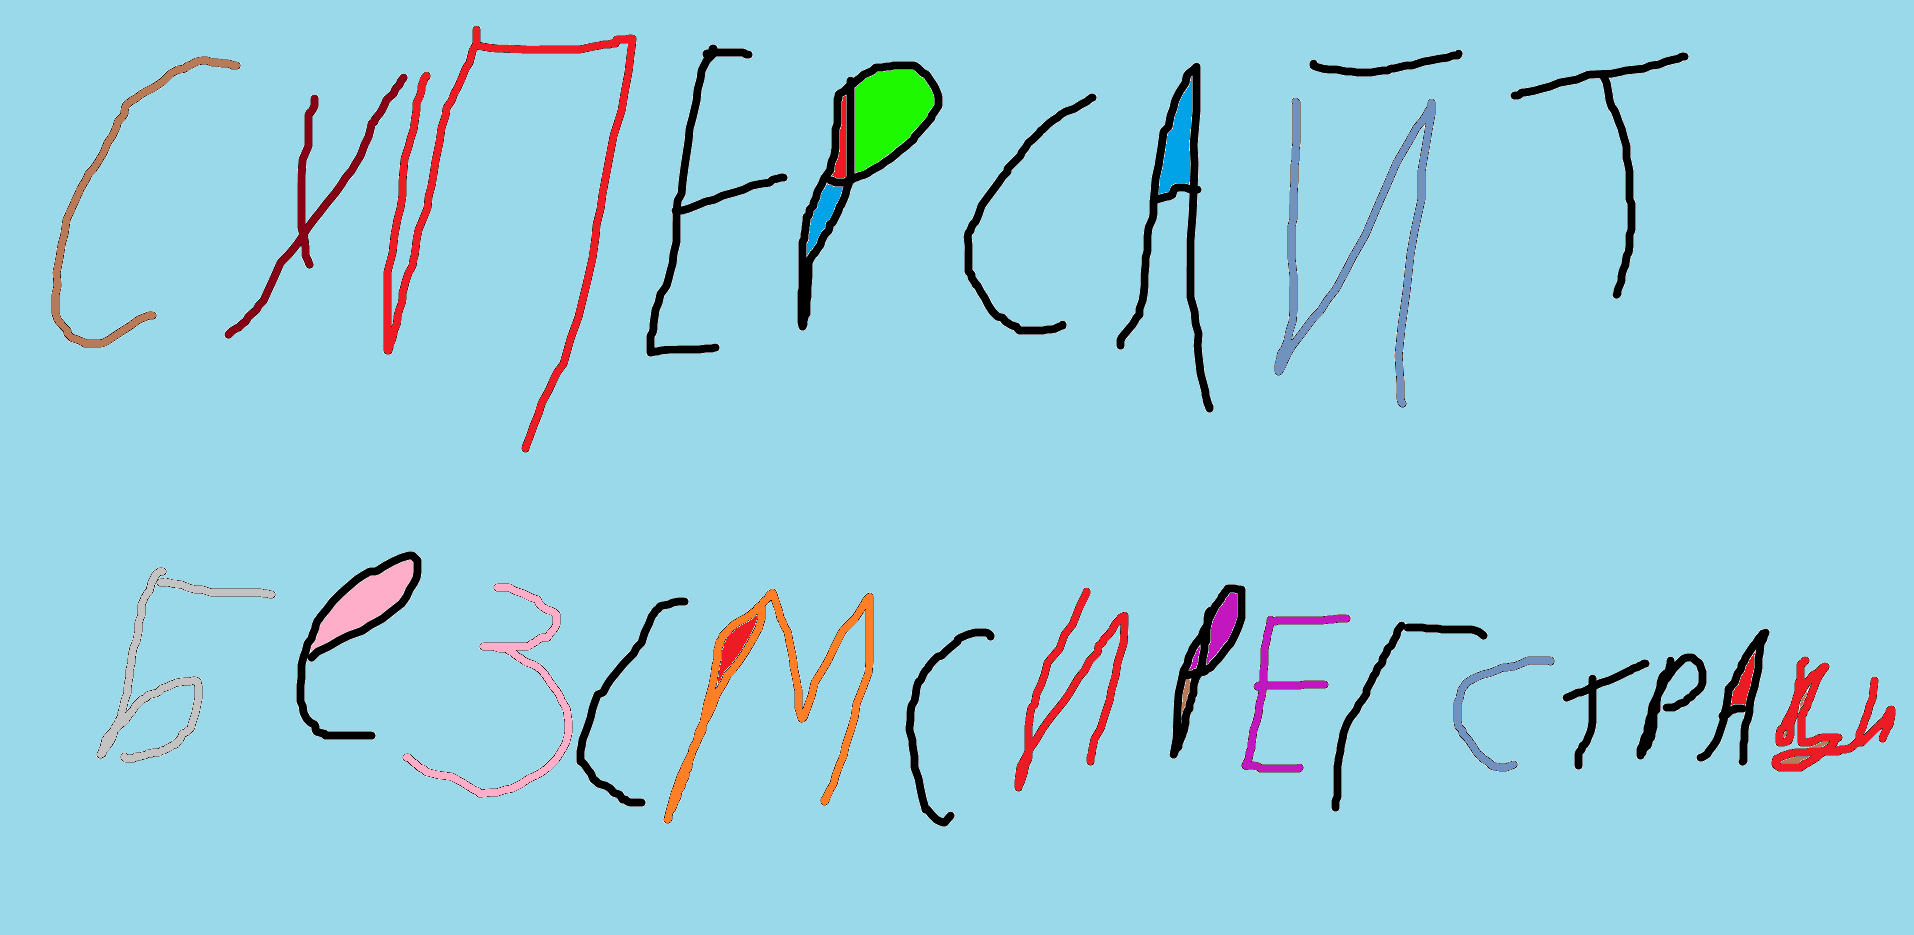 СУПЕРСАЙТ
БеЗ СМС И РЕГСТРАЦИ